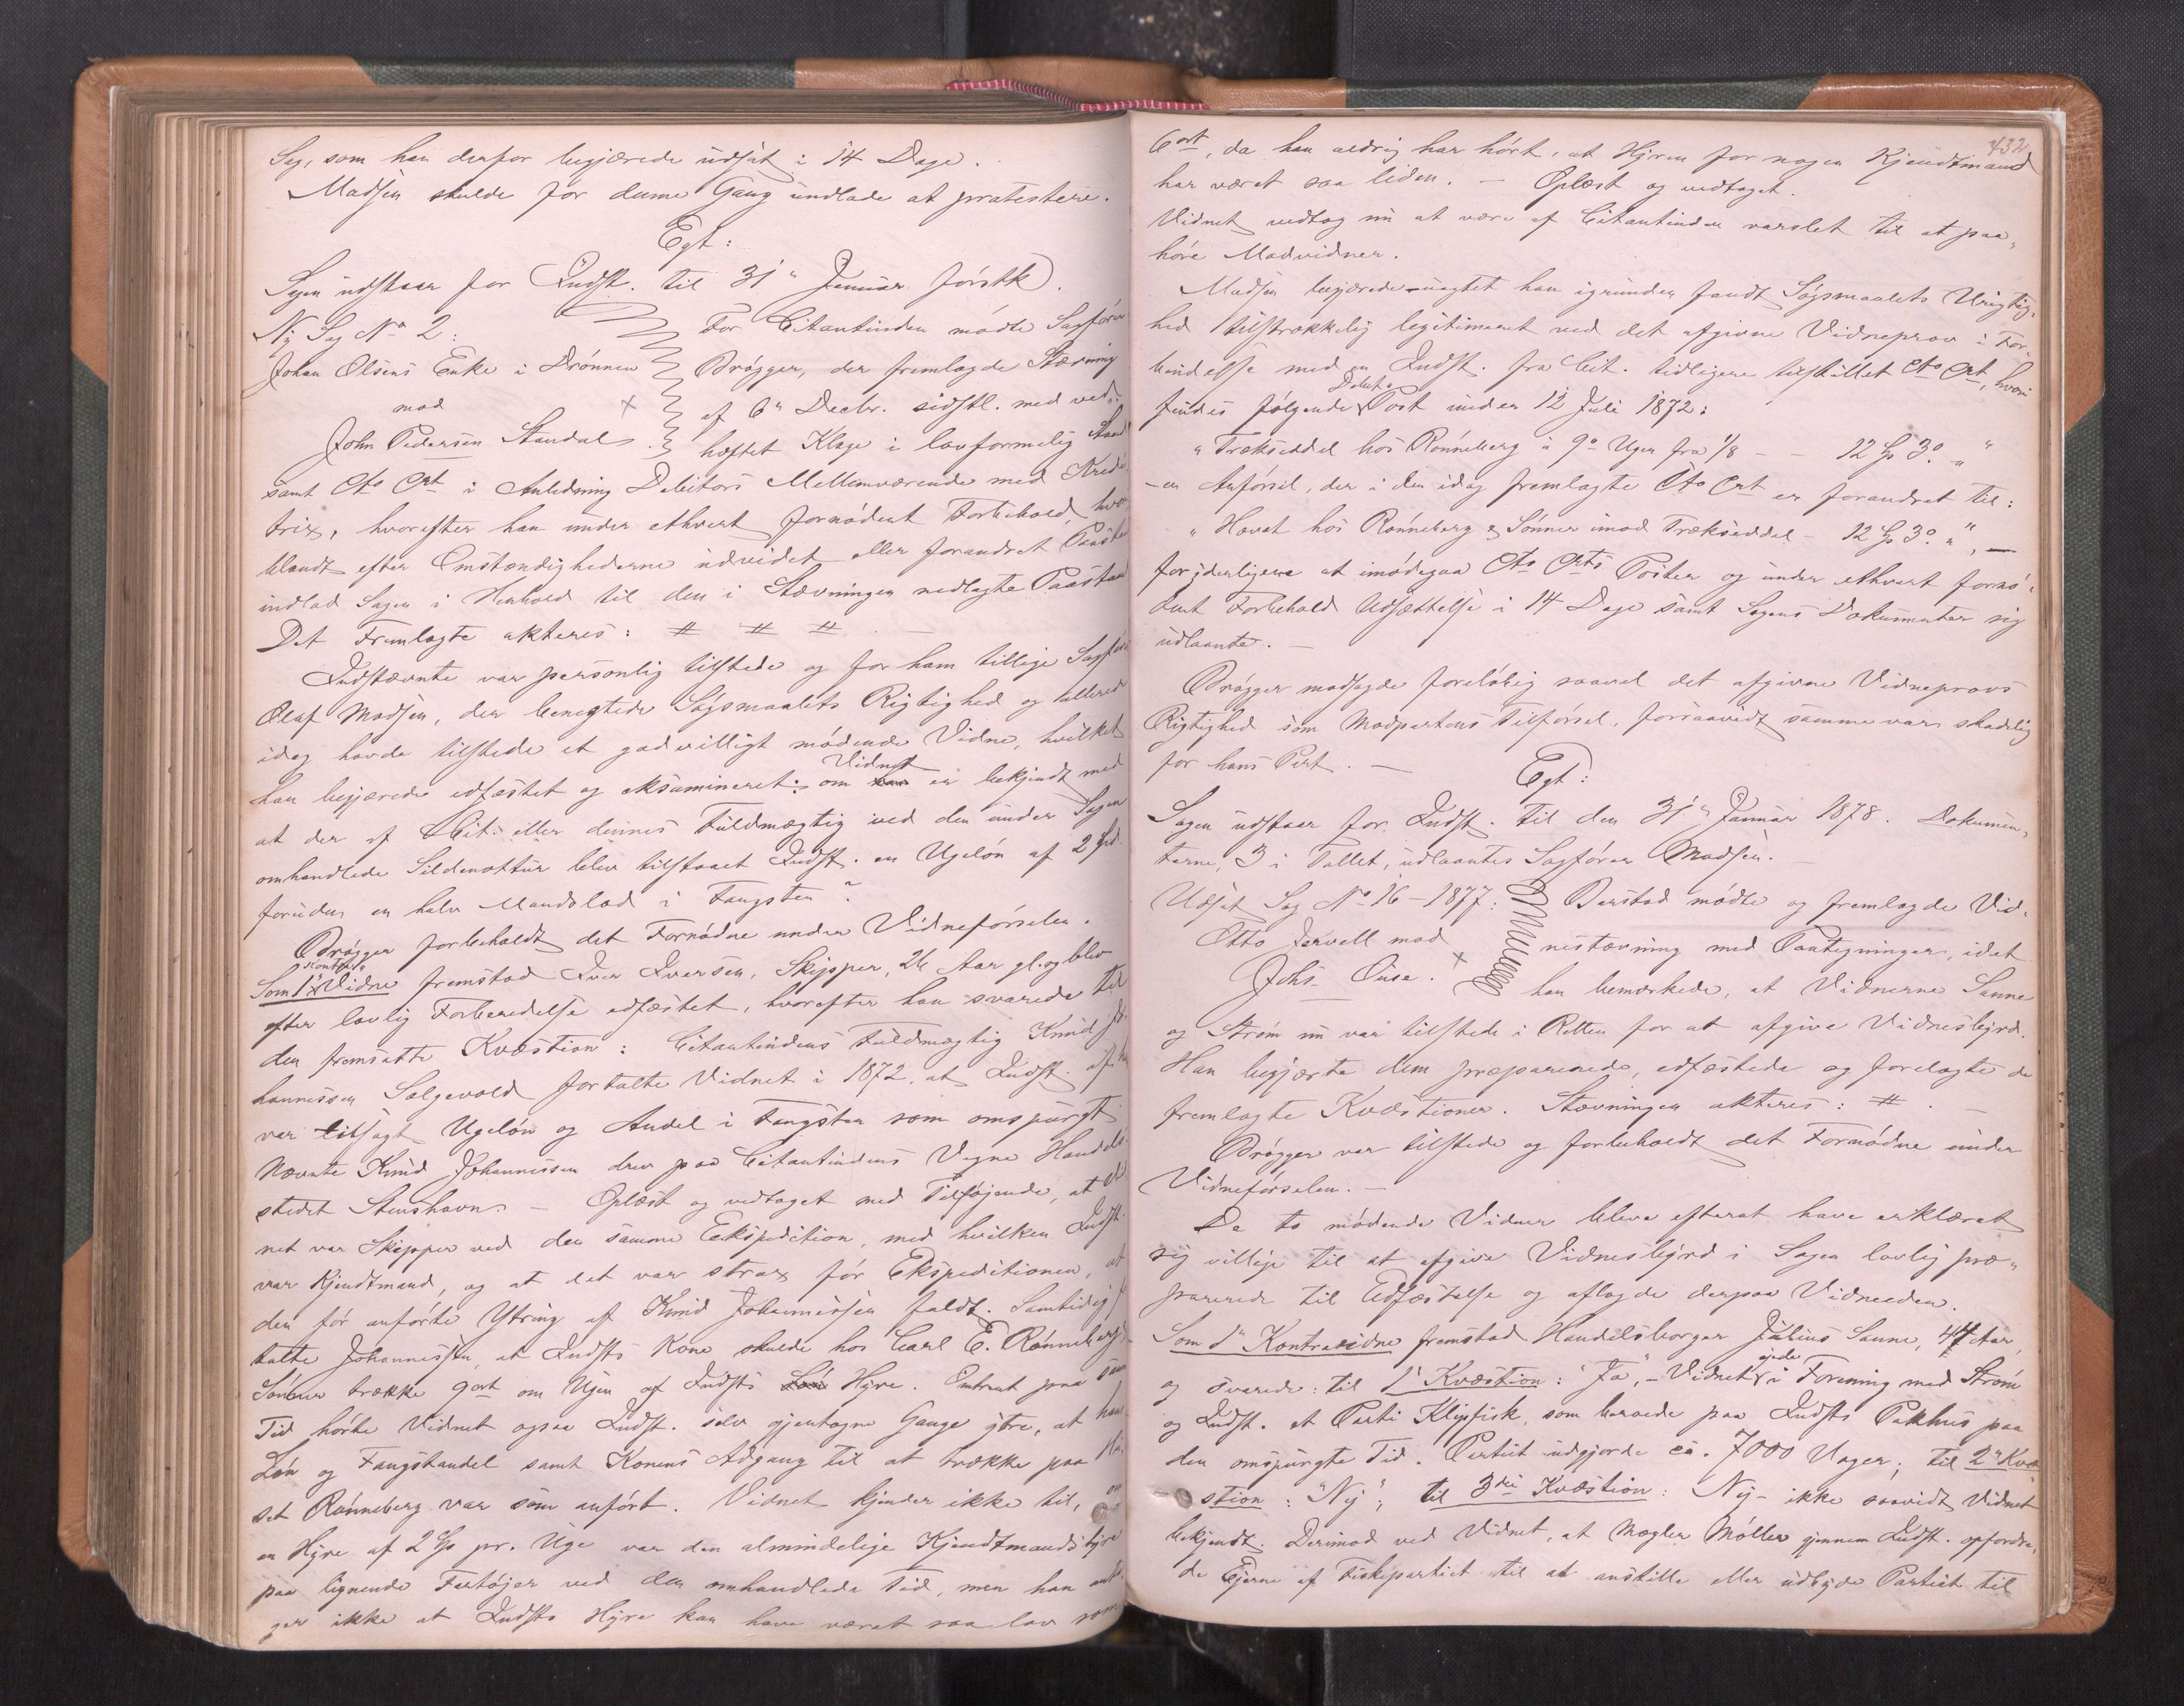 Sag, som han derfor begjærede udsat i 14 Dage.
Madsen skulde for denne Gang undlade at protestere.
Egt:
Sagen udstaar for Indst. til 31te Januar førstk.
Ny Sag No 2:
Johan Olsens Enke i Drønnen
mod
John Pedersen Standal
For Citantinden mødte Sagfører
Brøgger, der fremlagde Stævning
af 6te Decbr. sidstl. med ved-
hæftet Klage i lovformelig Stand
samt Cto Crt i Anledning Debitors Mellemværende med Kredi-
trix, hvorefter han under ethvert fornødent Forbehold, hvor-
blandt efter Omstændighederne udvidet eller forandret Paastand
indlod Sagen i Henhold til den i Stævningen nedlagte Paastand
Det Fremlagte akteres: # # #. —
Indstævnte var personlig tilstede og for ham tillige Sagfører
Olaf Madsen, der benegtede Søgsmaalets Rigtighed og allerede
idag havde tilstede et godvilligt mødende Vidne, hvilket
han begjærede edfæstet og eksamineret: om Vidnet er bekjendt med
at der af Cit. eller dennes Fuldmægtig ved den under Sagen
omhandlede Sildenottur blev tilstaaet Indst. en Ugeløn af 2 Spd.
foruden en halv Mandslod i Fangsten?
Brøgger forbeholdt det Fornødne under Vidneførselen.
Som 1te Kontra Vidne fremstod Iver Iversen, Skipper, 26 Aar gl. og blev
efter lovlig Forberedelse edfæstet, hvorefter han svarede til
den fremsatte Kvæstion: Citantindens Fuldmægtig Knud Jo-
hannessen Solgevold fortalte Vidnet i 1872, at Indst. af
var tilsagt Ugeløn og Andel i Fangsten som omspurgt
Nævnte Knud Johannessen drev paa Citantindens Vegne Handels-
stedet Stenshavn. — Oplæst og vedtaget med Tilføjende, at Vid-
net var Skipper ved den samme Ekspedition, med hvilken Indst.
var Kjendtmand, og at det var strax før Ekspeditionen, at
den før anførte Ytring af Knud Johannessen faldt. Samtidig
talte Johannessen, at Indsts Kone skulde hos Carl E. Rønneberg
Sønner trække 9 ort om Ugen af Indsts Hyre. Omtrent paa samme
Tid hørte Vidnet ogsaa Indst. selv gjentagne Gange ytre, at hans
Løn og Fangstandel samt Konens Adgang til at trække paa Hu-
set Rønneberg var som anført. Vidnet kjender ikke til, om
en Hyre af 2 Sp pr. Uge var den almindelige Kjendtmandshyre
paa lignende Fartøjer ved den omhandlede Tid, men han anta-
ger ikke at Indsts Hyre kan have været saa lav som
432
6 ort, da han aldrig har hørt, at Hyren for nogen Kjendtmand
har været saa liden. — Oplæst og vedtaget.
Vidnet vedtog nu at være af Citantinden varslet til at paa-
høre Modvidner.
Madsen begjærede uagtet han igrunden fandt Søgsmaalets Urigtig-
hed tilstrækkelig legitimeret ved det afgivne Vidneprov i For-
bindelse med en Indst. fra Cit. tidligere tilstillet Cto Crt, hvori
findes følgende Debet Post under 12 Juli 1872:
"Trækseddel hos Rønneberg à 9o Ugen fra 1/8 - - 12 Sp 3o "
- en Anførsel, der i den idag fremlagte Cto Crt er forandret til:
"Hævet hos Rønneberg & Sønner imod Trækseddel - 12 Sp 3o "", —
for yderligere at imødegaa Cto Crts Poster og under ethvert fornø-
dent Forbehold Udsættelse i 14 Dage samt Sagens Dokumenter sig
udlaante. —
Brøgger modsagde foreløbig saavel det afgivne Vidneprovs
Rigtighed som Modpartens Tilførsel, forsaavidt samme var skadelig
for hans Part. —
Egt:
Sagen udstaar for Indst. til den 31te Januar 1878. Dokumen-
terne, 3 i Tallet, udlaantes Sagfører Madsen.
Udsat Sag No 16 - 1877:
Otto Jervell mod
Johs. Ouse.
Berstad mødte og fremlagde Vid-
nestævning med Paategninger, idet
han bemærkede, at Vidnerne Sanne
og Strøm nu var tilstede i Retten for at afgive Vidnesbyrd.
Han begjærte dem præparerede, edfæstede og forelagte de
fremlagte Kvæstioner. Stævningen akteres: #. —
Brøgger var tilstede og forbeholdt det Fornødne under
Vidneførselen. —
De to mødende Vidner bleve efterat have erklæret
sig villige til at afgive Vidnesbyrd i Sagen lovlig præ-
parerede til Edfæstelse og aflagde derpaa Vidneeden.
Som 1te Kontravidne fremstod Handelsborger Julius Sanne, 44 Aar,
og svarede: til 1te Kvæstion: "Ja", - Vidnet ejede i Forening med Strøm
og Indst. et Parti Klipfisk, som beroede paa Indsts Pakhus paa
den omspurgte Tid. Partiet udgjorde ca. 7000 Voger; til 2den Kvæ-
stion: "Nej"; til 3die Kvæstion: Nej - ikke saavidt Vidnet
bekjendt. Derimod ved Vidnet, at Mægler Møller gjennem Indst. opfordre-
de Ejerne af Fiskepartiet til at anstille eller udbyde Partiet til